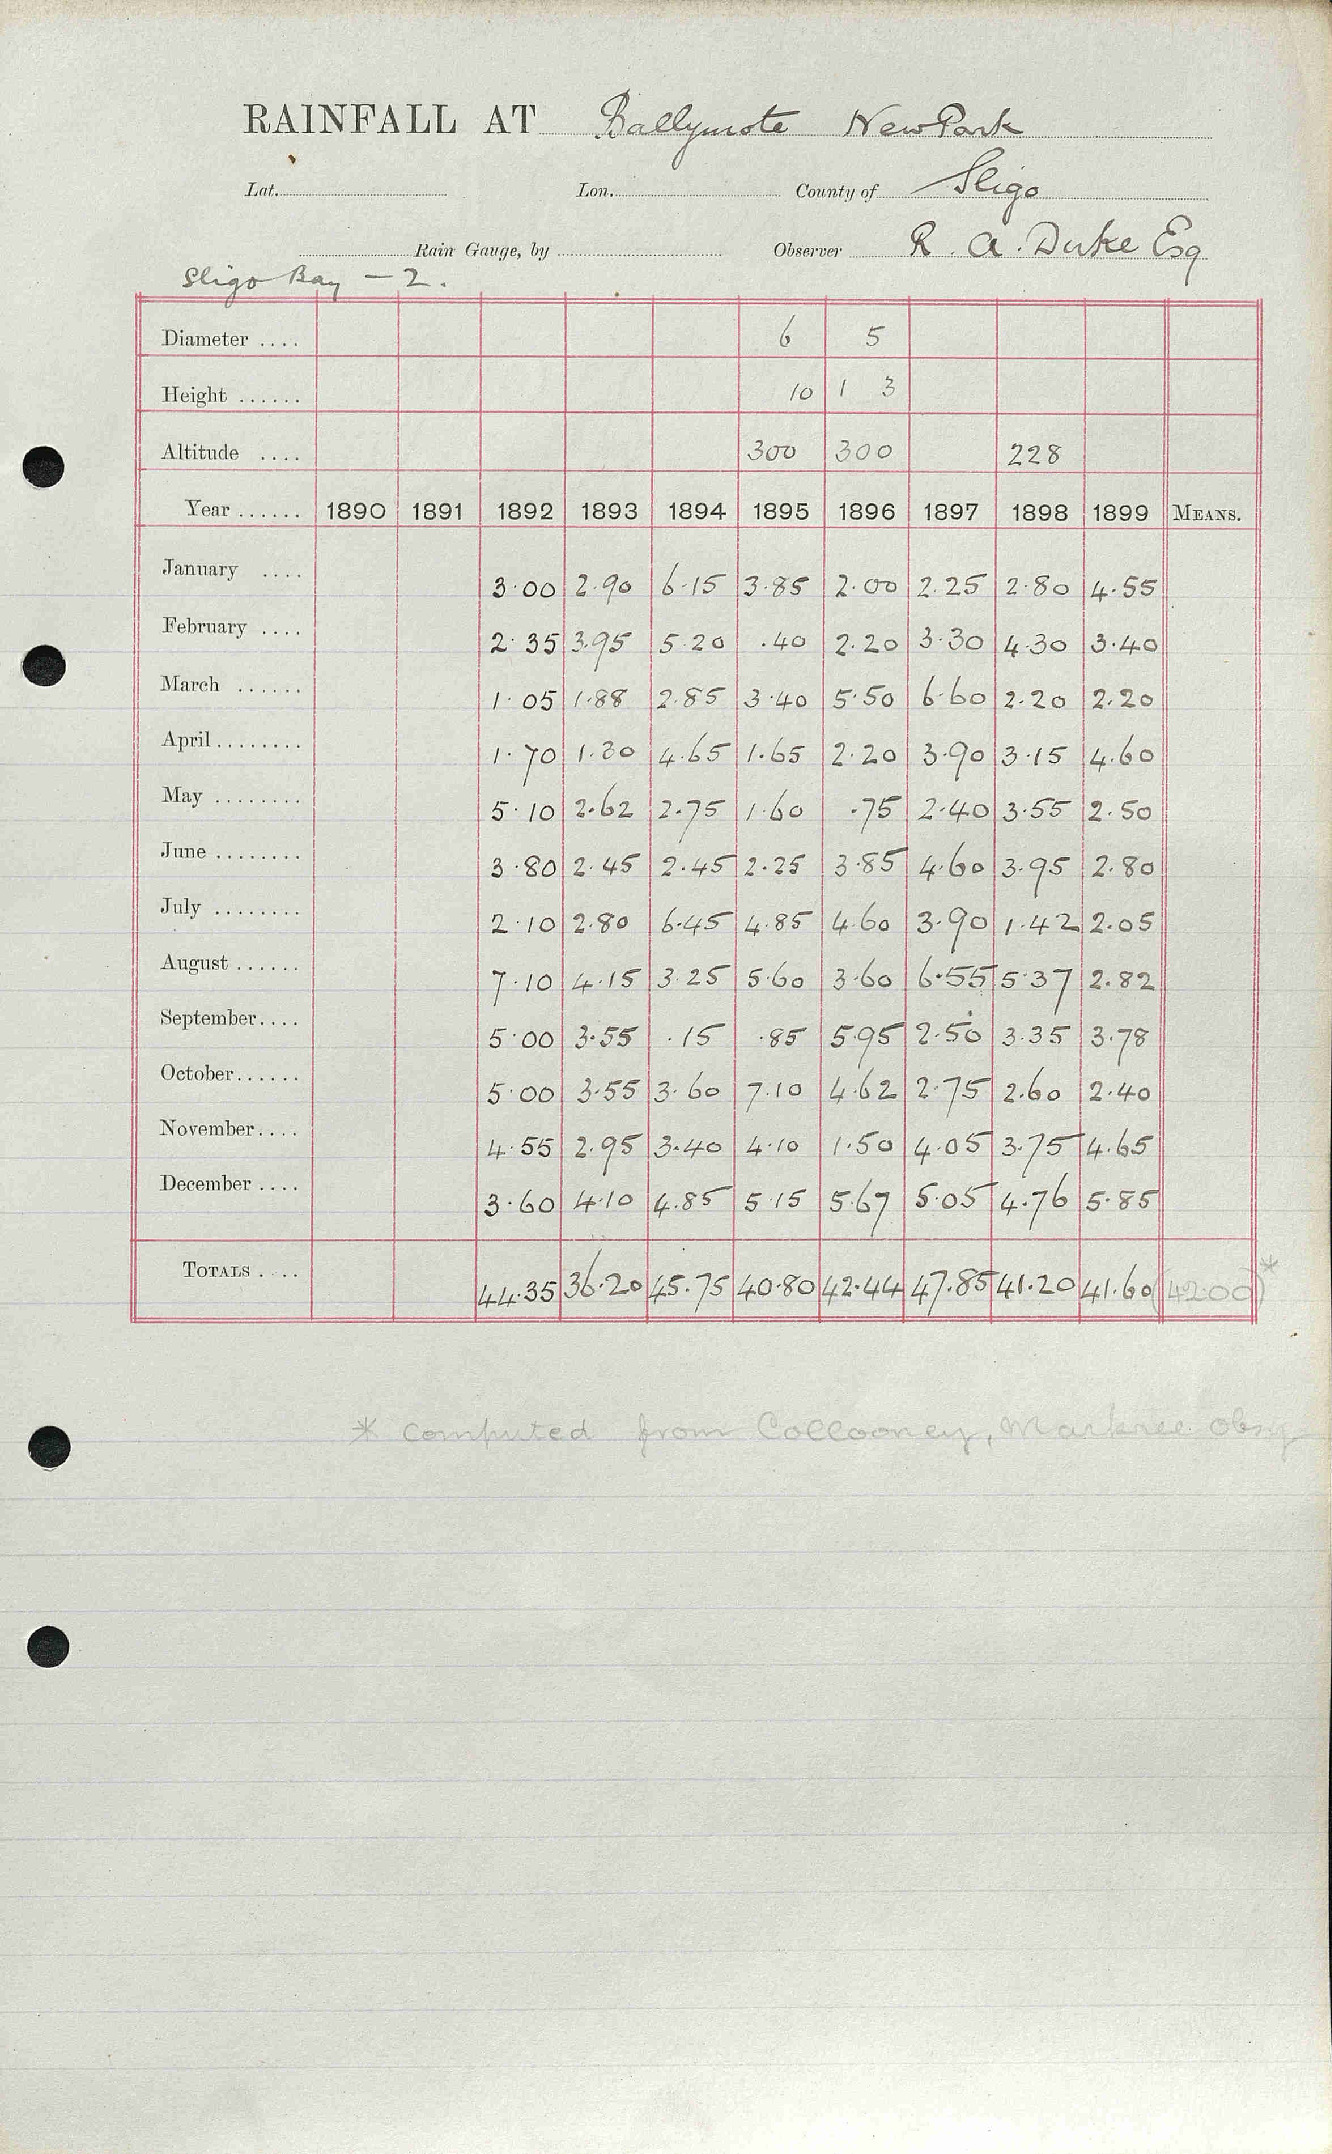 RAINFALL AT Ballymote New Park
Lat. Lon. County of Sligo
Rain Gauge, by Observer R. A. Duke Esq
Sligo Bay — 2.
Diameter .... 6 5
Height ...... 10 1 3
Altitude .... 300 300 228
Year ...... 1890 1891 1892 1893 1894 1895 1896 1897 1898 1899 MEANS.
January .... 3.00 2.90 6.15 3.85 2.00 2.25 2.80 4.55
February .... 2.35 3.95 5.20 .40 2.20 3.30 4.30 3.40
March ...... 1.05 1.88 2.85 3.40 5.50 6.60 2.20 2.20
April........ 1.70 1.30 4.65 1.65 2.20 3.90 3.15 4.60
May ........ 5.10 2.62 2.75 1.60 .75 2.40 3.55 2.50
June ........ 3.80 2.45 2.45 2.25 3.85 4.60 3.95 2.80
July ........ 2.10 2.80 6.45 4.85 4.60 3.90 1.42 2.05
August ...... 7.10 4.15 3.25 5.60 3.60 6.55 5.37 2.82
September.... 5.00 3.55 .15 .85 5.95 2.50 3.35 3.78
October...... 5.00 3.55 3.60 7.10 4.62 2.75 2.60 2.40
November.... 4.55 2.95 3.40 4.10 1.50 4.05 3.75 4.65
December .... 3.60 4.10 4.85 5.15 5.67 5.05 4.76 5.85
TOTALS .... 44.35 36.20 45.75 40.80 42.44 47.85 41.20 41.60 (42.00)*
* Computed from Collooney, Markree Obsy